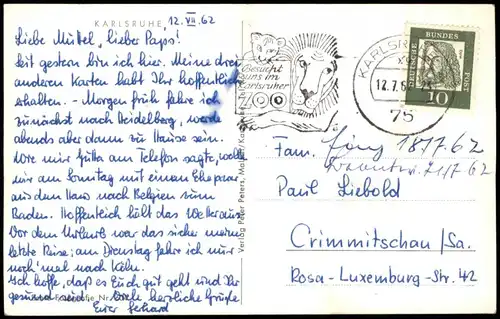 KARLSRUHE, 12. VII. 62
Liebe Mutter, lieber Papa!
Seit gestern bin ich hier. Meine drei
anderen Karten habt Ihr hoffentlich
erhalten. - Morgen früh fahre ich
zunächst nach Heidelberg, werde
abends aber dann zu Hause sein.
Wie mir Jutta am Telefon sagte, wollen
wir am Sonntag mit einem Ehepaar
aus dem Haus nach Belgien zum
Baden. Hoffentlich hält das Wetter aus.
Vor dem Urlaub war das sicher meine
letzte Reise; am Dienstag fahre ich nur
noch 'mal nach Köln.
Ich hoffe, daß es Euch gut geht und Ihr
gesund seid. Viele herzliche Grüße
Euer Gerhard
Verlag Peter Peters,
Besucht
uns im
Karlsruher
ZOO
KARLSRUHE
12.7.62
75
DEUTSCHE BUNDESPOST
10
Fam.
Eing. 18.7.62
Beantw. 21.7.62
Paul Liebold
Crimmitschau/Sa.
Rosa-Luxemburg-Str. 42